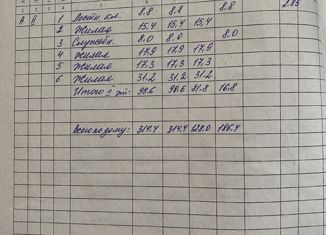 А А 1 Лестн. кл. 8,8 8,8 8,8 2.85
2 Жилая 15,4 15,4 15,4
3 Служебн. 8,0 8,0 8,0
4 Жилая 17,9 17,9 17,9
5 Жилая 17,3 17,3 17,3
6 Жилая 31,2 31,2 31,2
Итого II эт: 98.6 98.6 81.8 16.8
Всего по дому: 314.4 314.4 128.0 186.4